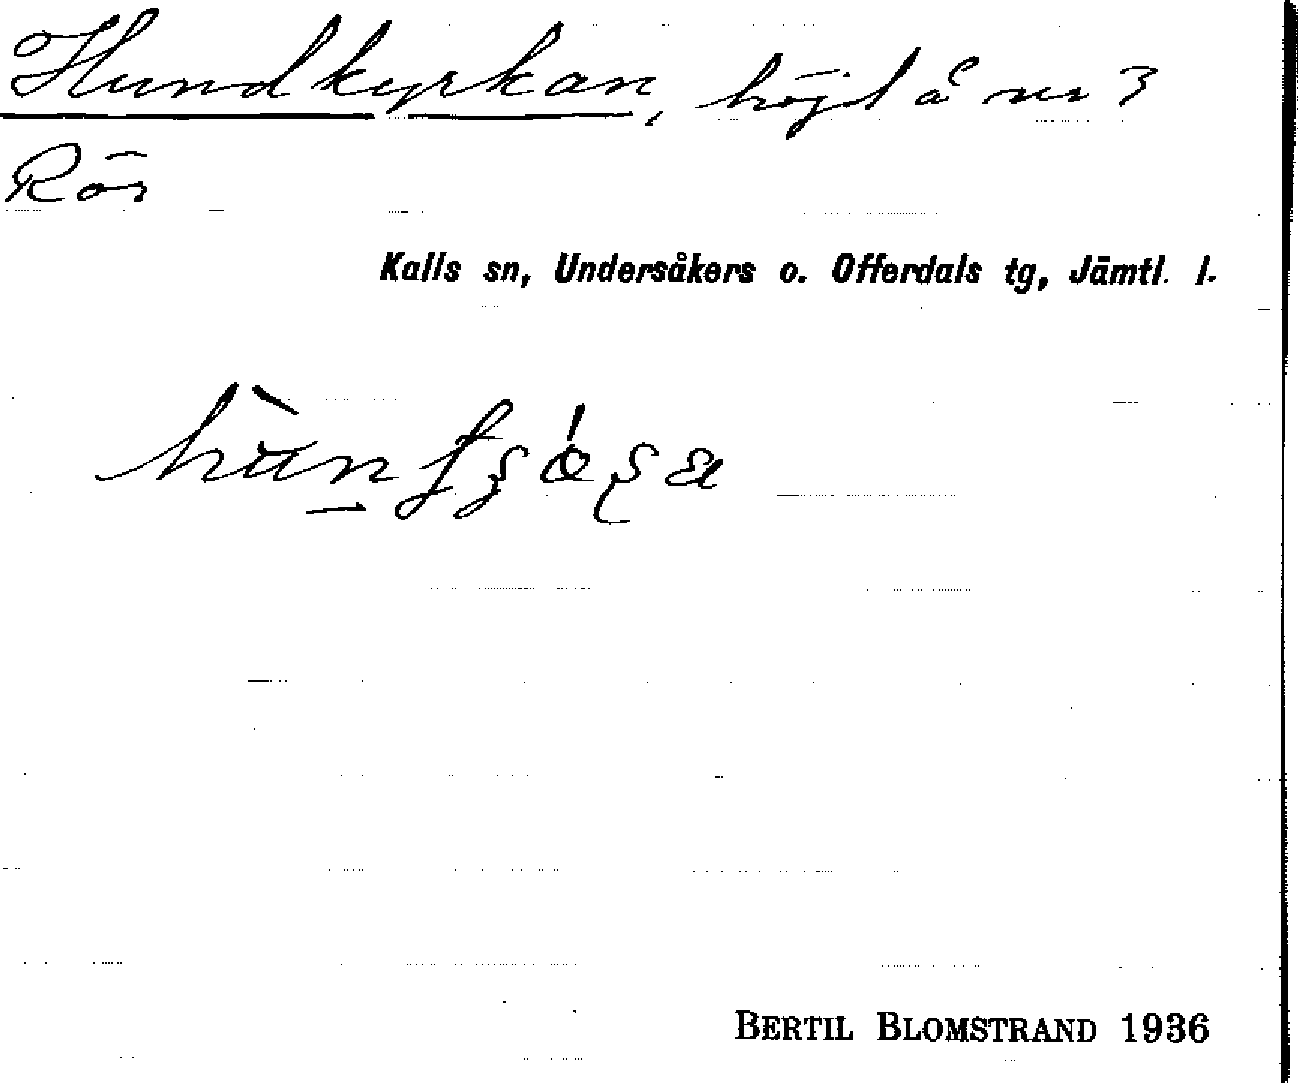 Hundkyrkan, höjd å nr 3
Rör
Kalls sn, Undersåkers o. Offerdals tg, Jämtl. l.
BERTIL BLOMSTRAND 1936